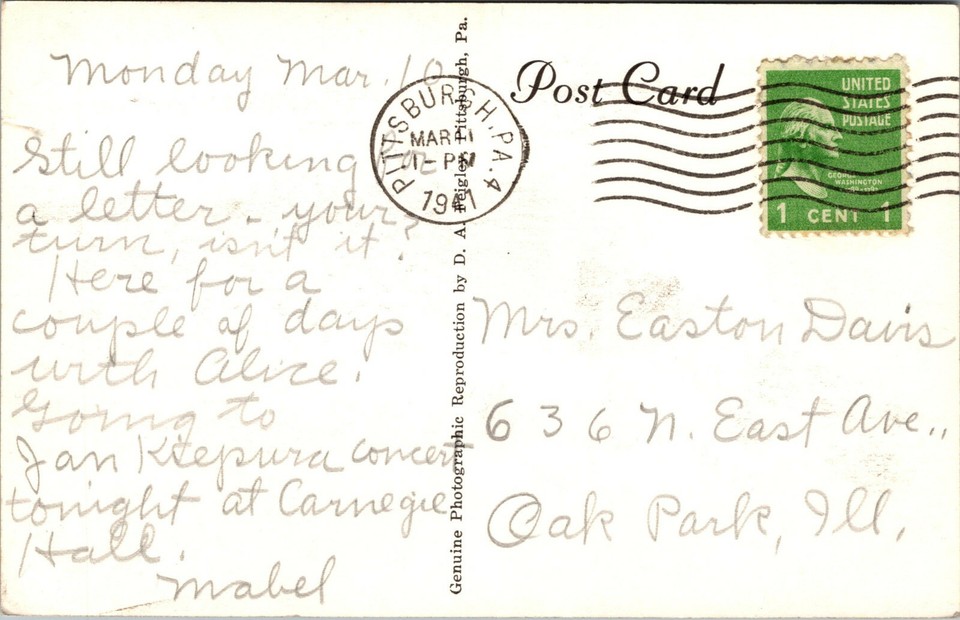 Monday Mar. 10
Still looking for
a letter - your
turn, isn't it?
Here for a
couple of days
with Alice.
Going to
Jan Kiepura concert
tonight at Carnegie
Hall.
Mabel
Genuine Photographic Reproduction by D. A. Feigley, Pittsburgh, Pa.
Post Card
PITTSBURGH, PA. 4
MAR 11
1 - PM
1941
UNITED
STATES
POSTAGE
GEORGE
WASHINGTON
1789-1797
1 CENT 1
Mrs. Easton Davis
636 N. East Ave.,
Oak Park, Ill.